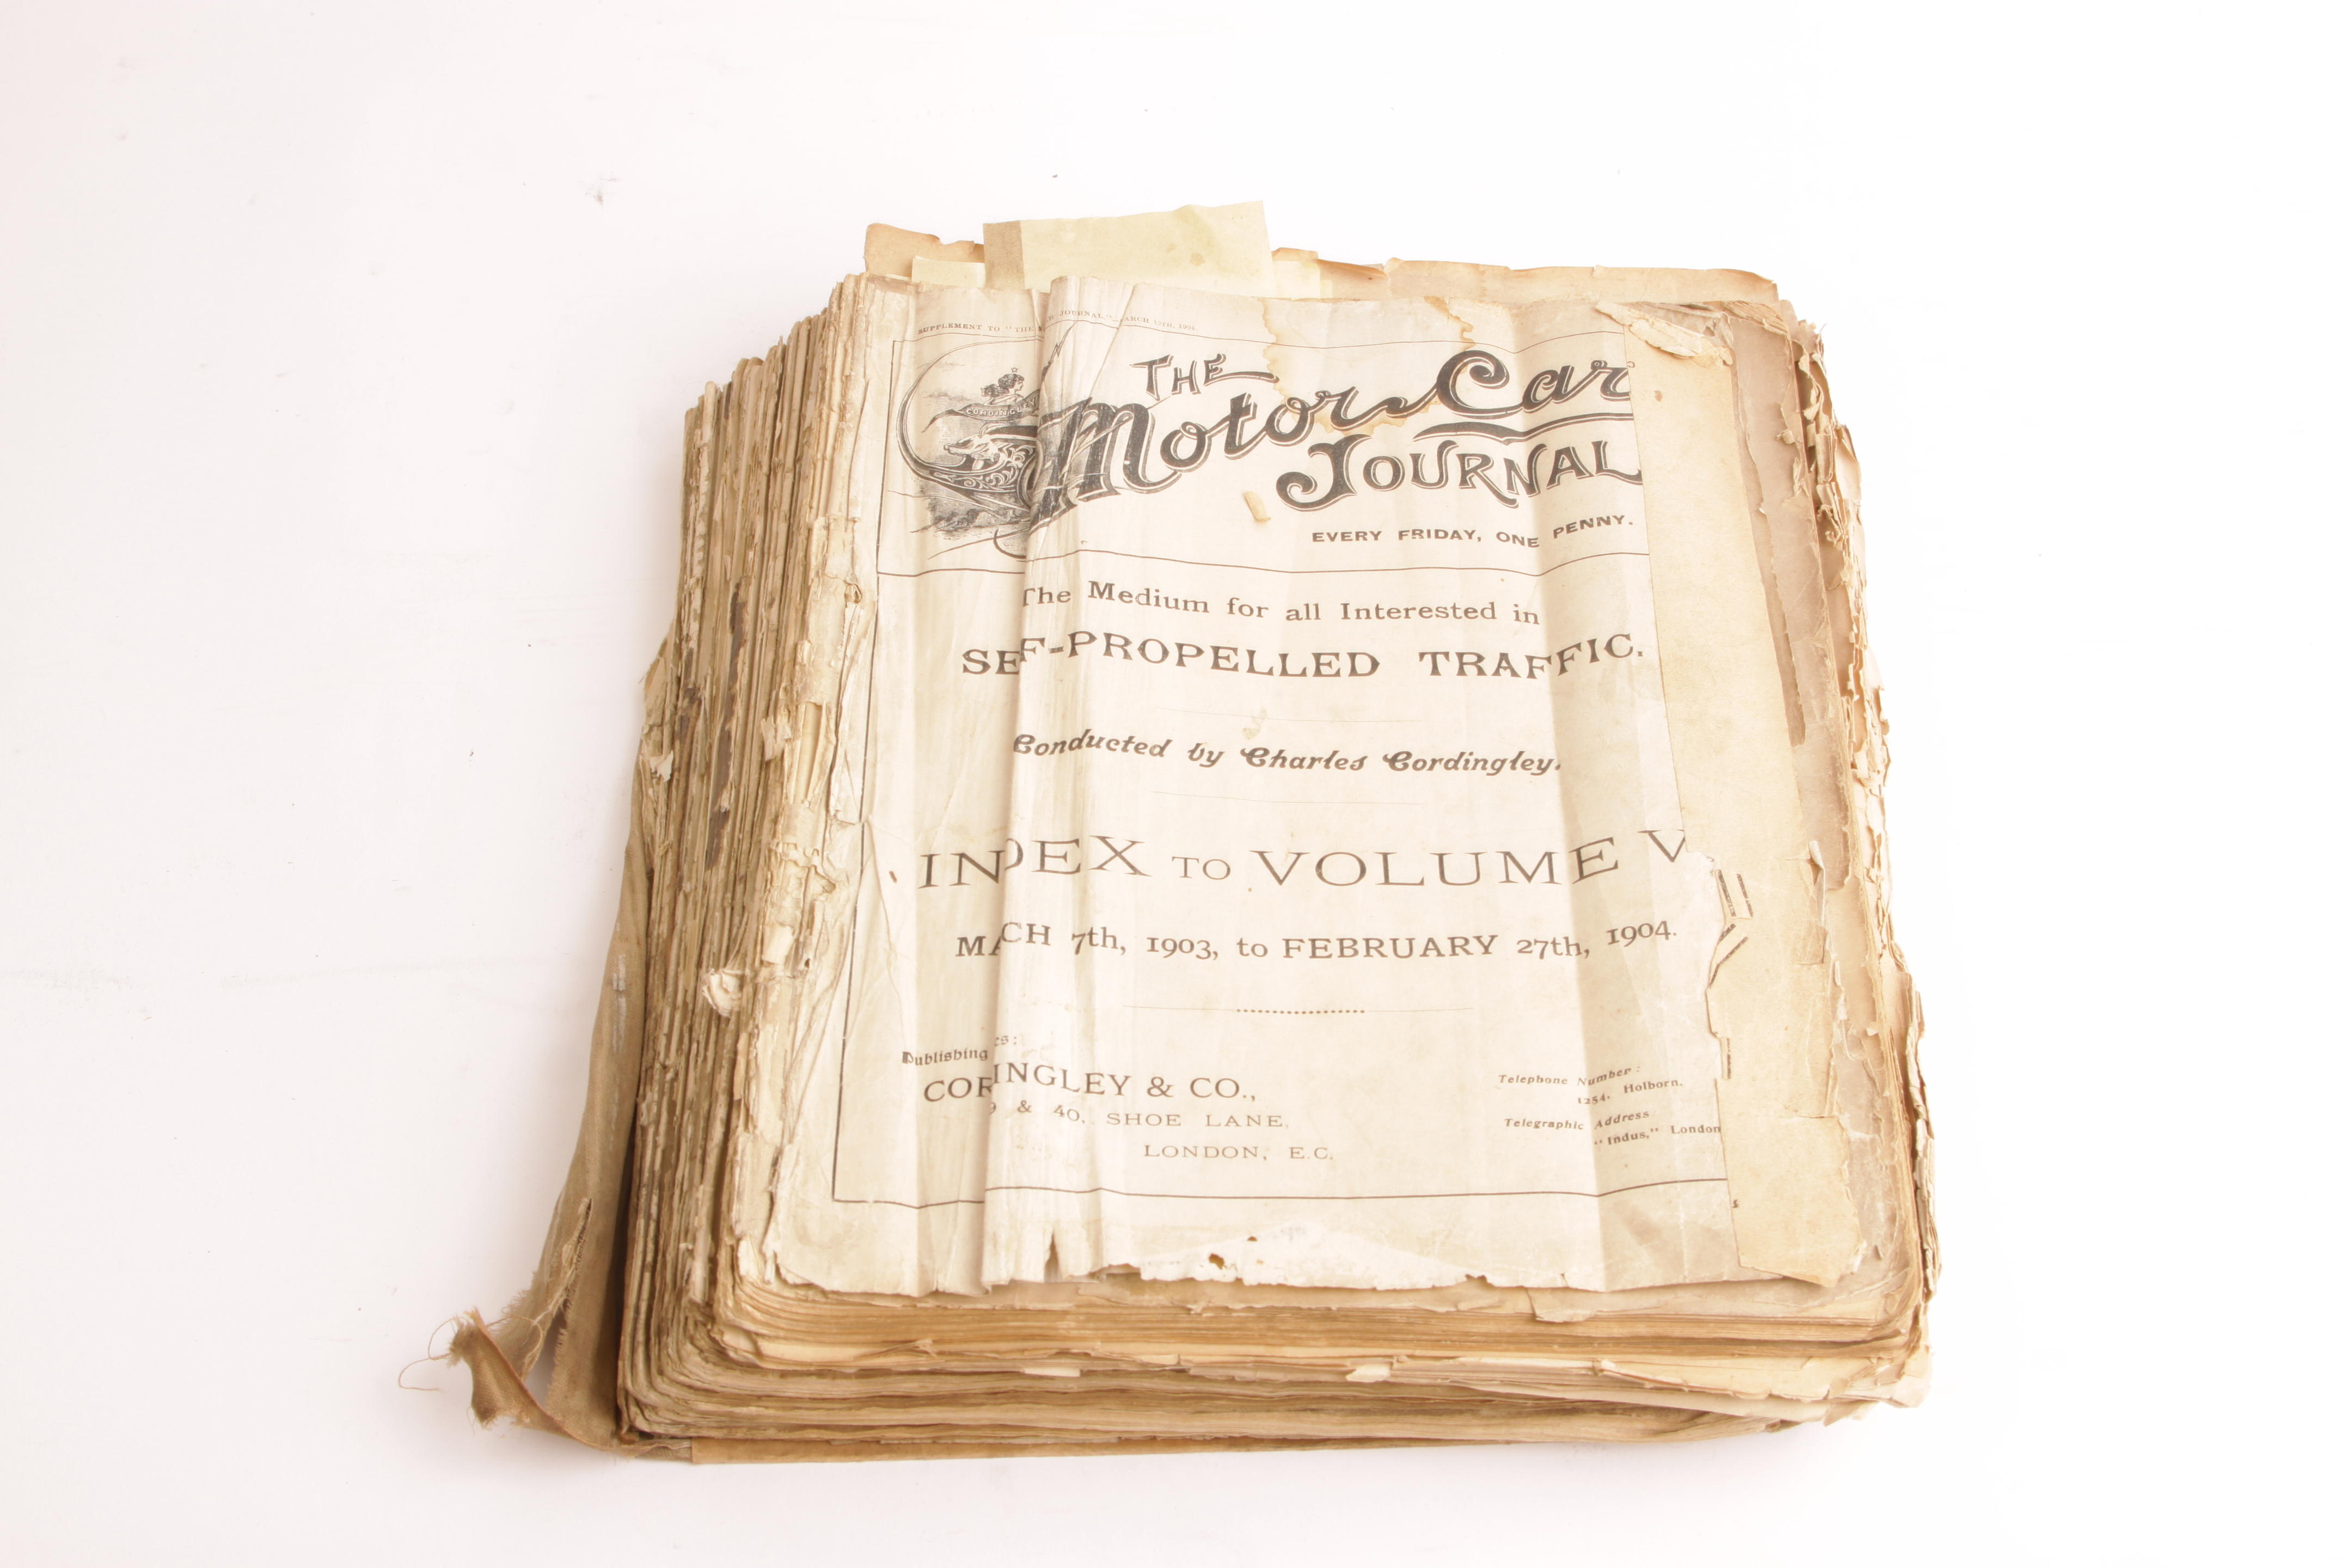 SUPPLEMENT TO "THE M JOURNAL," ARCH 19TH, 1904
CORDINGL
THE
Motor-Car
JOURNAL
EVERY FRIDAY, ONE PENNY.
The Medium for all Interested in
SEF-PROPELLED TRAFFIC.
Conducted by Charles Cordingley.
INDEX TO VOLUME V
MACH 7th, 1903, to FEBRUARY 27th, 1904.
Publishing es:
CORINGLEY & CO.,
9 & 40, SHOE LANE,
LONDON, E.C.
Telephone Number:
1254, Holborn.
Telegraphic Address
"Indus," London